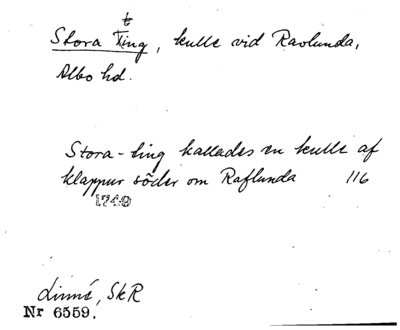 t
Stora Ting, kulle vid Ravlunda,
Albo hd.
Stora-ting kallades en kulle af
klappur söder om Raflunda 116
1749
Linné, SkR
Nr 6559.